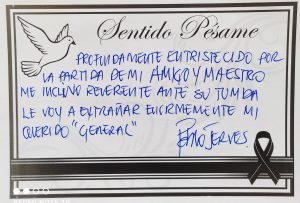 Sentido Pésame
PROFUNDAMENTE ENTRISTECIDO POR
LA PARTIDA DE MI AMIGO Y MAESTRO
ME INCLINO REVERENTE ANTE SU TUMBA
LE VOY A EXTRAÑAR ENORMEMENTE MI
QUERIDO "GENERAL"